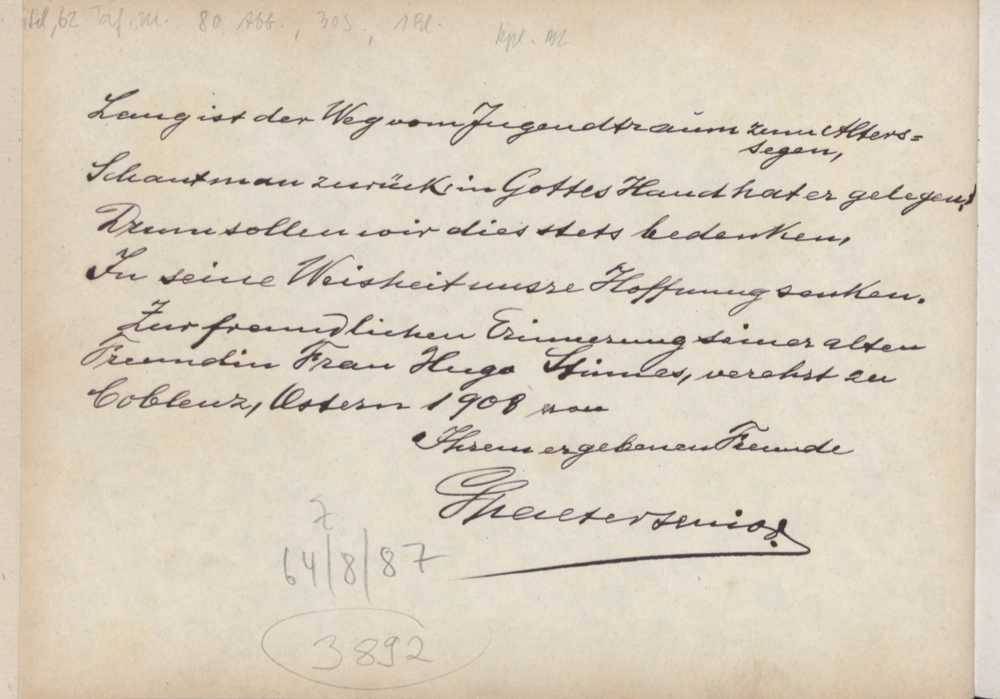 Titel, 62 Taf. m. 80 Abb., 30 S., 1 Bl.
kpl.
Lang ist der Weg vom Jugendtraum zum Alters=
segen,
Schaut man zurück, in Gottes Hand hat er gelegen!
Drum sollen wir dies stets bedenken,
In seine Weisheit unsre Hoffnung senken.
Zur freundlichen Erinnerung seiner alten
Freundin Frau Hugo Stinnes, verehrt zu
Coblenz, Ostern 1908 von
Ihrem ergebenen Freunde
senior.
64/8/87
3892